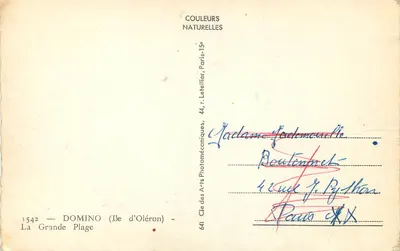 COULEURS
NATURELLES
64 Cie des Arts Photomécaniques, 44, r. Letellier, Paris-15e
Madame Mademoiselle
4
Paris XX
1542 — DOMINO (Ile d'Oléron) -
La Grande Plage